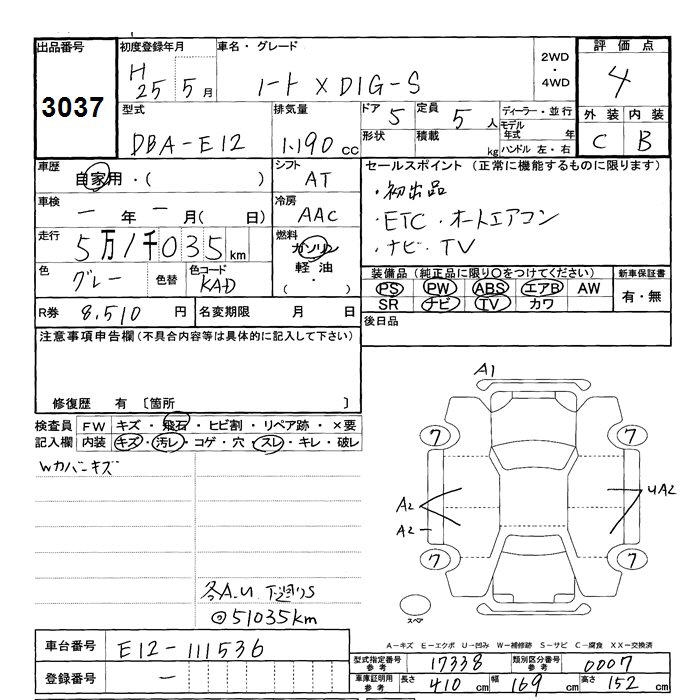 出品番号 初度登録年月 車名・グレード 2WD ・ 4WD 評価点
3037 H 25 5月 ノート X DIG-S 4
型式 排気量 ドア 5 定員 5 人 ディーラー・並行 外装 内装
DBA-E12 1.190 cc 形状 積載 kg モデル年式 年 C B
ハンドル 左・右
車歴 自家用・( ) シフト AT セールスポイント (正常に機能するものに限ります)
・初出品
車検 一 年 一 月( 日) 冷房 AAC ・ETC・オートエアコン
走行 5万1千035km 燃料 ガソリン 軽油 ( ・ ) ・ナビ・TV
色 グレー 色替 色コード KAD 装備品 (純正品に限り○をつけてください) 新車保証書
PS PW ABS エアB AW 有・無
SR ナビ TV カワ
R券 8,510 円 名変期限 月 日 後日品
注意事項申告欄(不具合内容等は具体的に記入して下さい)
修復歴 有 〔箇所 〕
検査員 FW キズ・飛石・ヒビ割・リペア跡・×要
記入欄 内装 キズ・汚レ・コゲ・穴・スレ・キレ・破レ
Wカバーキズ
A1
7 7
A2 UA2
A2
7 7
スペア
各A.U 下廻りS
◎51035km
A−キズ E−エクボ U−凹み W−補修跡 S−サビ C−腐食 XX−交換済
車台番号 E12-111536
登録番号 −
型式指定番号 参考 17338 類別区分番号 参考 0007
車庫証明用 参考 長さ 410 cm 幅 169 cm 高さ 152 cm